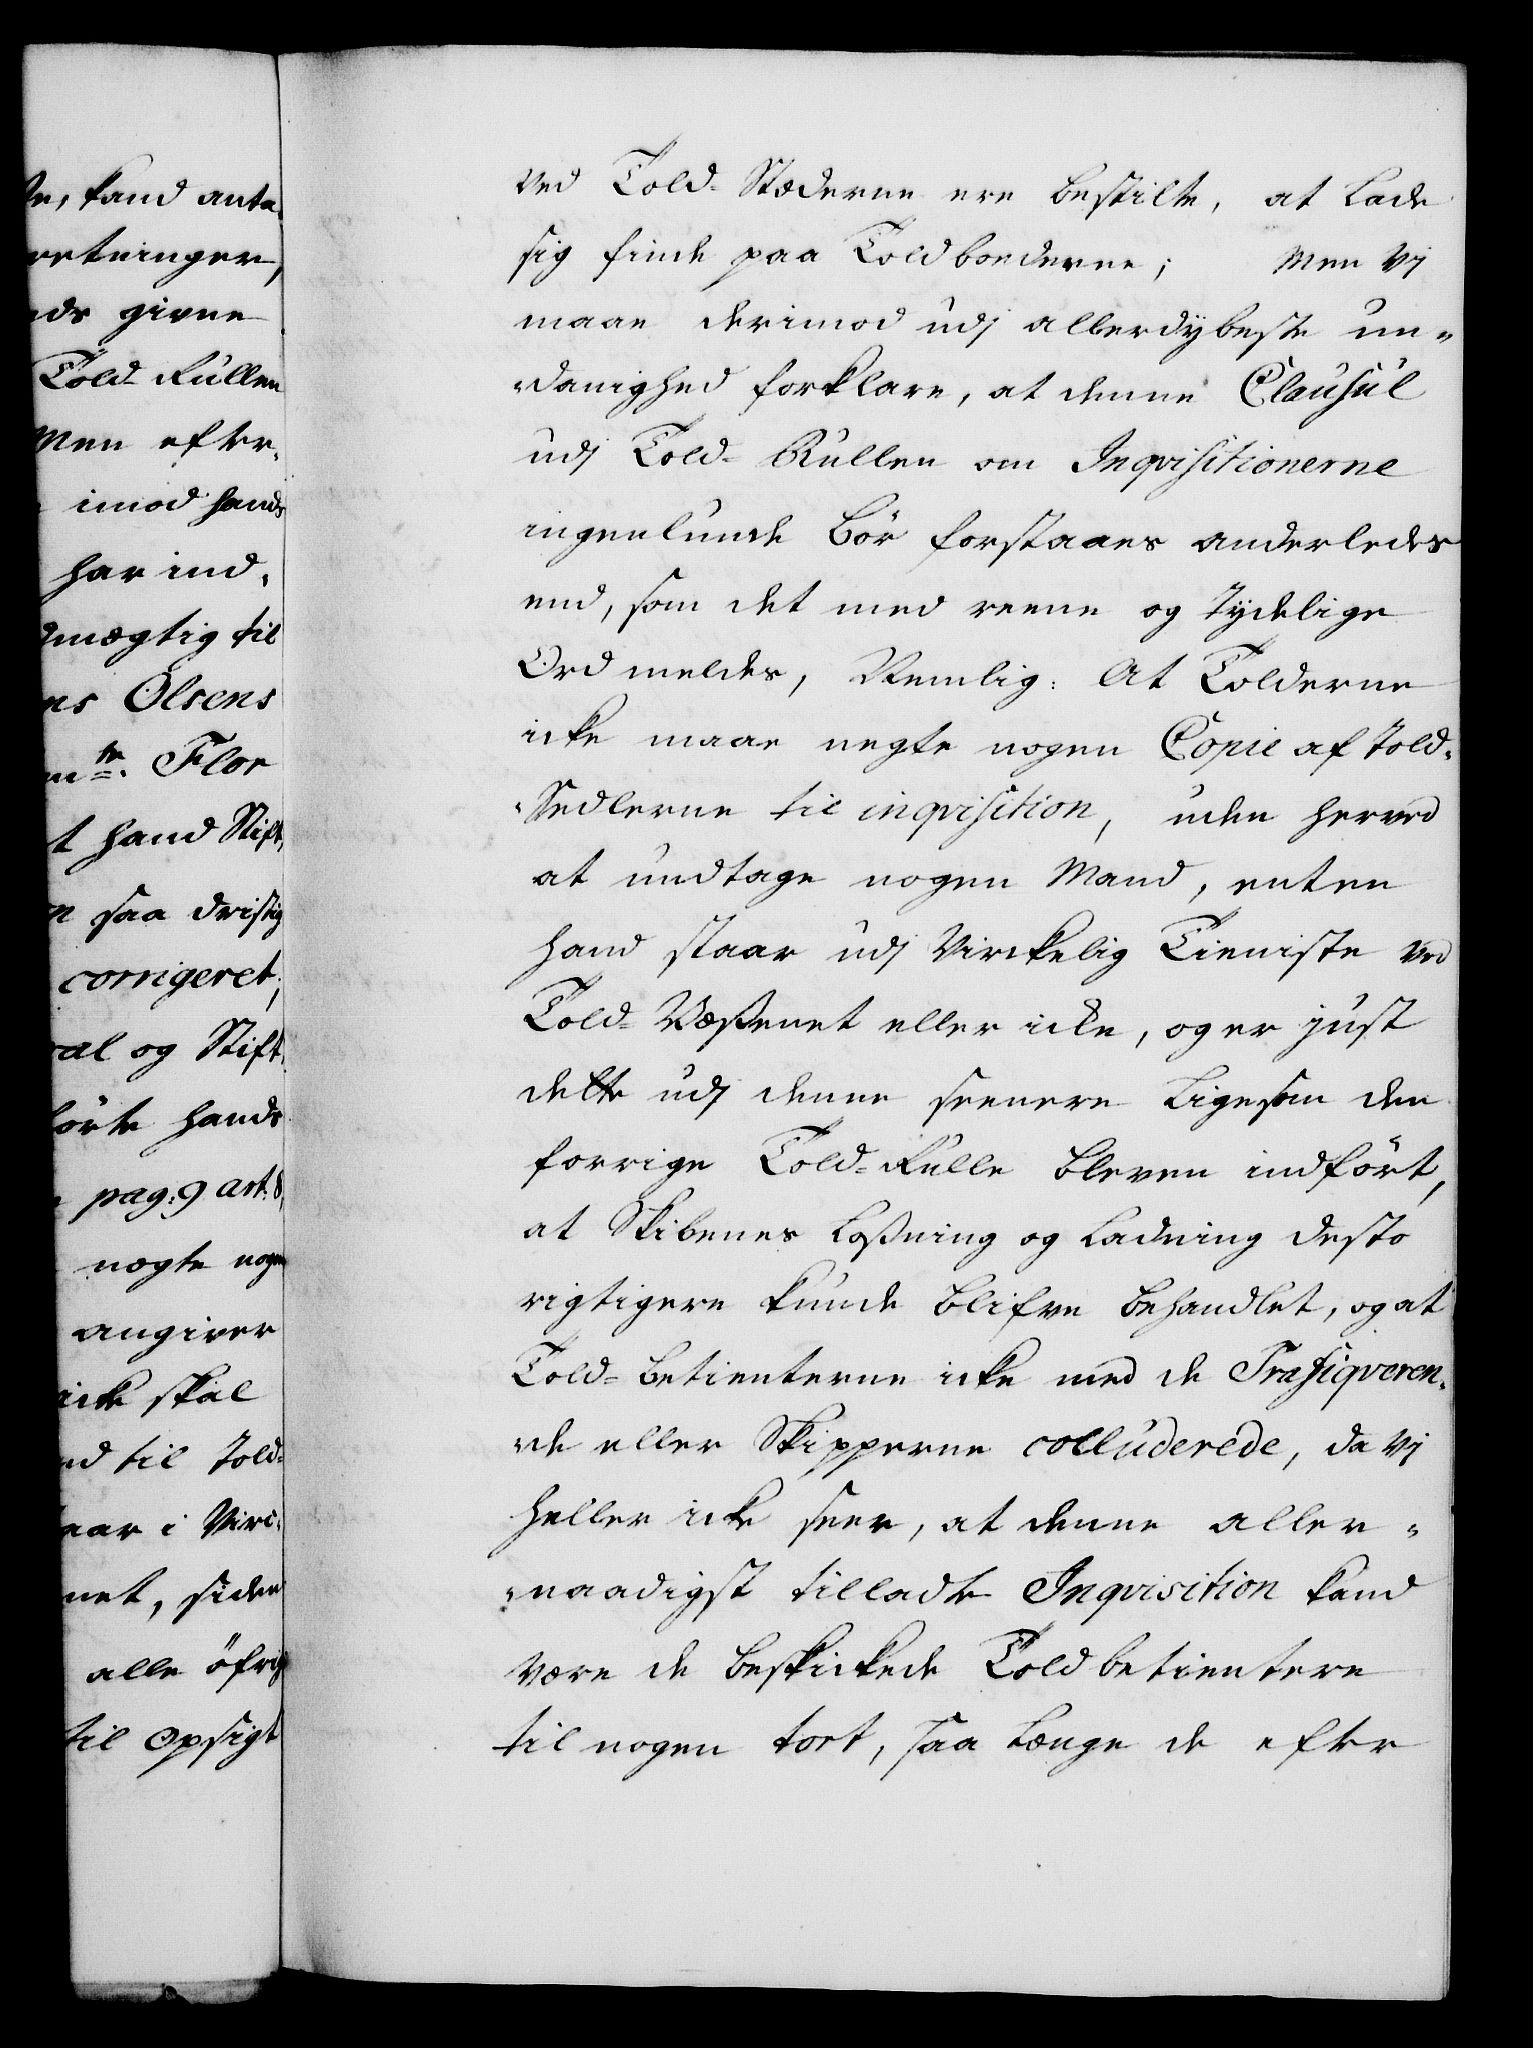 de, kand anta-
retninger,
nds givne
Told-Rullen
Men efter-
imod hands
har ind-
dmægtig til
ns Olsens
mtr. Flor
t hand Stift-
n saa dristig
corrigeret;
ral og Stift-
förte hands
pag: 9 art: 8,
nægte nogen
angiver
icke skal
nd til Told-
taar i Virc-
net, siden
alle öfrig
til Opsigt
ved Told-Stæderne ere bestilte, at lade
sig finde paa Toldboederne; Men Vj
maae derimod udj allerdybeste un-
-danighed forklare, at denne Clausul
udj Told-Rullen om Inqvisitionerne
ingenlunde bör forstaaes anderledes
end, som det med reene og tydelige
Ord meldes, Nemlig: At Tolderne
icke maae negte nogen Copie af Told-
-Sedlerne til inqvisition, uden herved
at undtage nogen Mand, enten
hand staar udj Virckelig Tieniste ved
Told-Væßenet eller icke, og er just
dette udj denne seenere ligesom den
forrige Told-Rulle bleven indfört,
at Skibenes Loßning og Ladning desto
rigtigere kunde blifve behandlet, og at
Told-betienterne icke med de Trafiqveren-
-de eller Skipperne colluderede, da Vj
heller icke seer, at denne aller-
-naadigst tilladte Inqvisition kand
være de beskickede Toldbetientere
til nogen tort, saa længe de efter